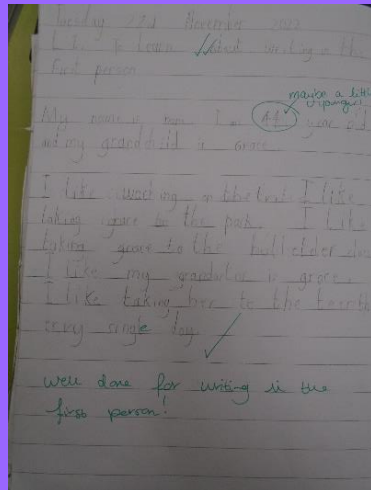 Tuesday November 2022
I to learn about writing in the
first person
maybe a little
younger!
My name is I am 41 year old
and my grandchild is grace
I like working on the I like
taking grace to the park I like
taking grace to the
I like my is grace.
I like taking her to the
every single day
well done for writing in the
first person!